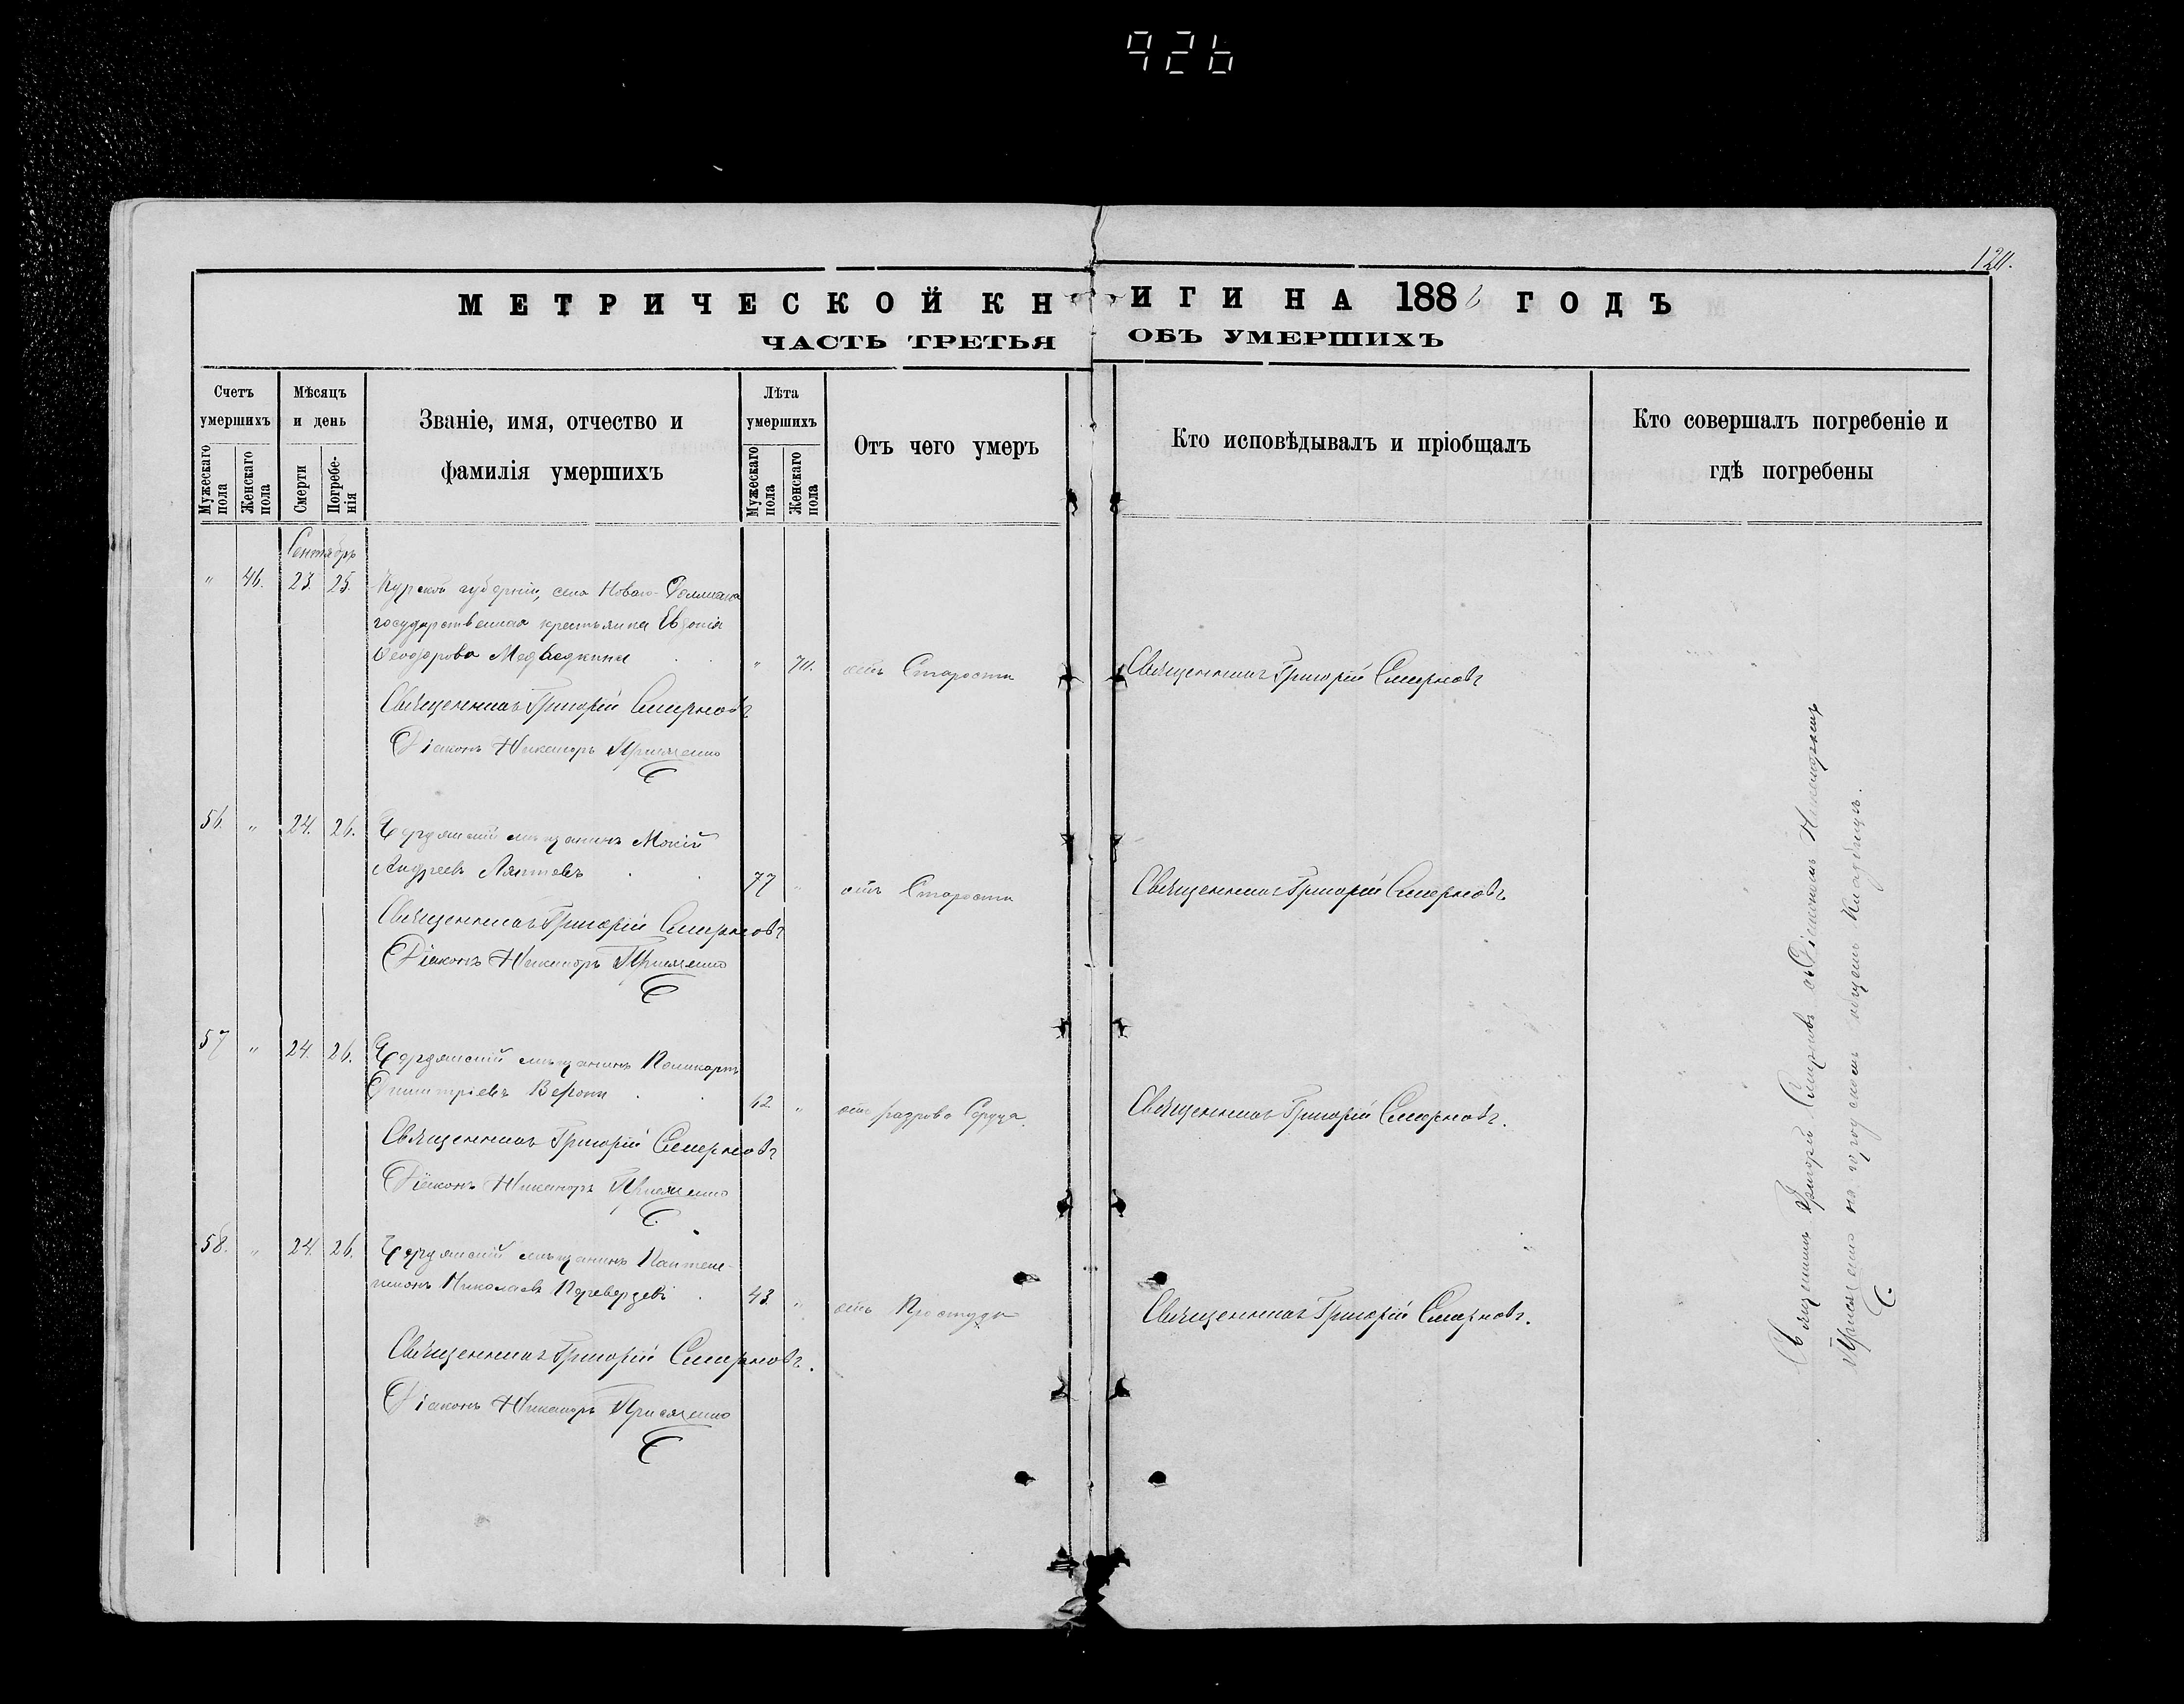 926
124.
МЕТРИЧЕСКОЙ КНИГИ НА 1886 ГОДЪ
ЧАСТЬ ТРЕТЬЯ ОБЪ УМЕРШИХЪ
Счетъ умершихъ
Мужескаго пола
Женскаго пола
Мѣсяцъ и день
Смерти
Погребенія
Званіе, имя, отчество и
фамилія умершихъ
Лѣта умершихъ
Мужескаго пола
Женскаго пола
Отъ чего умеръ
Кто исповѣдывалъ и пріобщалъ
Кто совершалъ погребеніе и
гдѣ погребены
Сентябрь
" 46. 23. 25. Курской губерніи, села Новаго-
государственная крестьянка
Ѳеодорова Медведкина " 70. отъ Старости Священникъ Григорій Смирновъ
Священникъ Григорій Смирновъ
Діаконъ Никаноръ
56. " 24. 26. Бердянскій мѣщанинъ Мокій
Андреевъ Лаптевъ 77 " отъ Старости Священникъ Григорій Смирновъ
Священникъ Григорій Смирновъ
Діаконъ Никаноръ
57 " 24. 26. Бердянскій мѣщанинъ Поликарпъ
Димитріевъ 42 " отъ разрыва Сердца. Священникъ Григорій Смирновъ.
Священникъ Григорій Смирновъ
Діаконъ Никаноръ
58. " 24. 26. Бердянскій мѣщанинъ Пантелеи-
монъ Николаевъ Переверзевъ 43. " отъ Простуды Священникъ Григорій Смирновъ.
Священникъ Григорій Смирновъ.
Діаконъ Никаноръ
Священникъ Григорій Смирновъ съ Діакономъ
на городскомъ общемъ кладбищѣ.